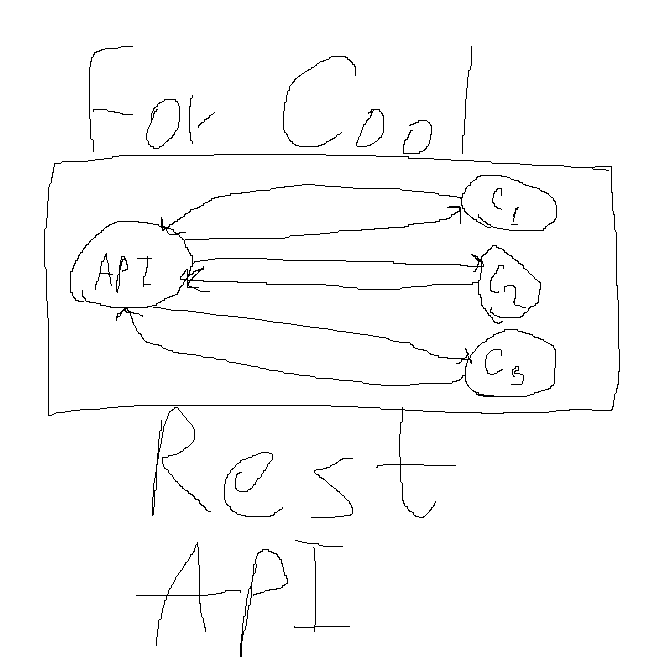 For Cool
C1
API
C2
C3
Rest
API